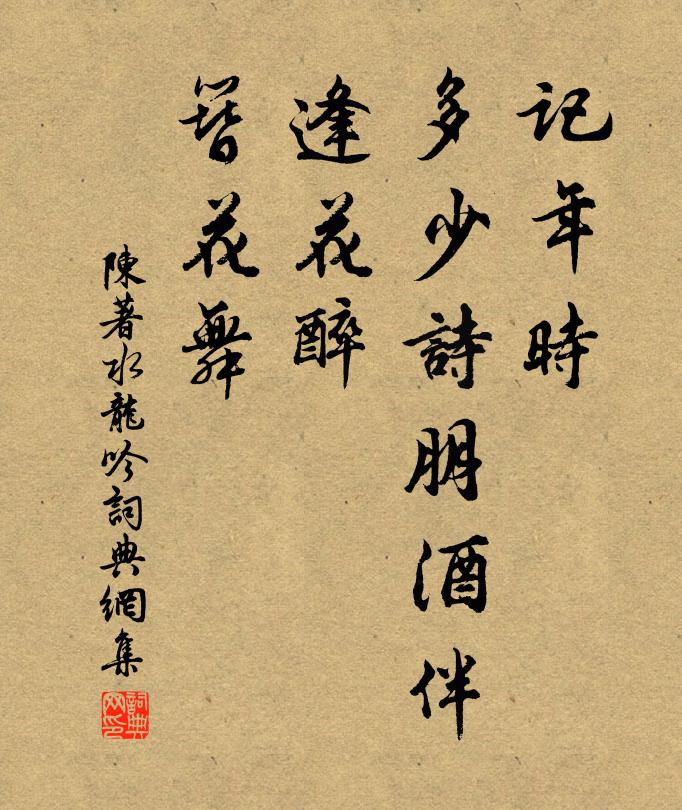 記年時
多少詩朋酒伴
逢花醉
簪花舞
陳著水龍吟詞典網集
詞典网印